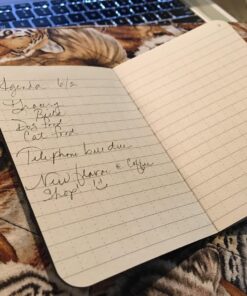 Agenda 6/2
Grocery
Bread
Dog food
Cat food
Telephone bill due
New flavor @ Coffee
Shop